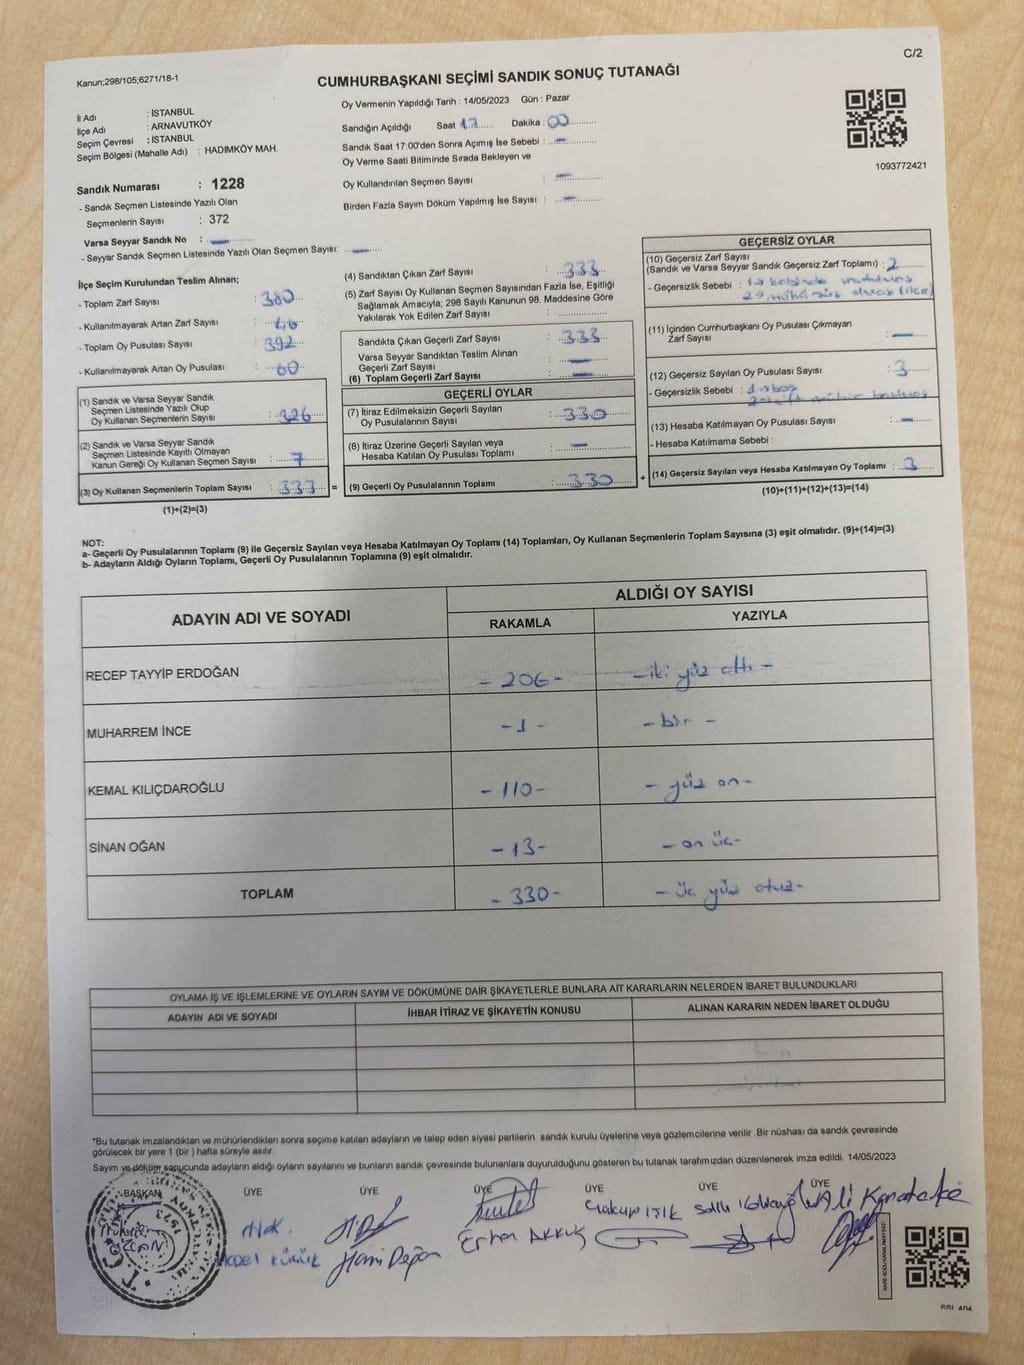 C/2
Kanun;298/105;6271/18-1
CUMHURBAŞKANI SEÇİMİ SANDIK SONUÇ TUTANAĞI
İl Adı : İSTANBUL
İlçe Adı : ARNAVUTKÖY
Seçim Çevresi : İSTANBUL
Seçim Bölgesi (Mahalle Adı) : HADIMKÖY MAH.
Oy Vermenin Yapıldığı Tarih : 14/05/2023 Gün : Pazar
Sandığın Açıldığı Saat 17 Dakika : 00
Sandık Saat 17:00'den Sonra Açımış İse Sebebi : —
Oy Verme Saati Bitiminde Sırada Bekleyen ve
Oy Kullandırılan Seçmen Sayısı : —
Birden Fazla Sayım Döküm Yapılmış İse Sayısı : —
1093772421
Sandık Numarası : 1228
- Sandık Seçmen Listesinde Yazılı Olan
Seçmenlerin Sayısı : 372
Varsa Seyyar Sandık No : —
- Seyyar Sandık Seçmen Listesinde Yazılı Olan Seçmen Sayısı: —
İlçe Seçim Kurulundan Teslim Alınan;
- Toplam Zarf Sayısı : 380
- Kullanılmayarak Artan Zarf Sayısı
- Toplam Oy Pusulası Sayısı : 392
- Kullanılmayarak Artan Oy Pusulası : 60
(1) Sandık ve Varsa Seyyar Sandık
Seçmen Listesinde Yazılı Olup
Oy Kullanan Seçmenlerin Sayısı : 326
(2) Sandık ve Varsa Seyyar Sandık
Seçmen Listesinde Kayıtlı Olmayan
Kanun Gereği Oy Kullanan Seçmen Sayısı : 7
(3) Oy Kullanan Seçmenlerin Toplam Sayısı : 333
(1)+(2)=(3)
(4) Sandıktan Çıkan Zarf Sayısı : 333
(5) Zarf Sayısı Oy Kullanan Seçmen Sayısından Fazla İse, Eşitliği
Sağlamak Amacıyla; 298 Sayılı Kanunun 98. Maddesine Göre
Yakılarak Yok Edilen Zarf Sayısı :
Sandıkta Çıkan Geçerli Zarf Sayısı : 333
Varsa Seyyar Sandıktan Teslim Alınan
Geçerli Zarf Sayısı : —
(6) Toplam Geçerli Zarf Sayısı : —
GEÇERLİ OYLAR
(7) İtiraz Edilmeksizin Geçerli Sayılan
Oy Pusulalarının Sayısı : 330
(8) İtiraz Üzerine Geçerli Sayılan veya
Hesaba Katılan Oy Pusulası Toplamı : —
= (9) Geçerli Oy Pusulalarının Toplamı : 330 +
GEÇERSİZ OYLAR
(10) Geçersiz Zarf Sayısı
(Sandık ve Varsa Seyyar Sandık Geçersiz Zarf Toplamı) : 2
- Geçersizlik Sebebi :
(11) İçinden Cumhurbaşkanı Oy Pusulası Çıkmayan
Zarf Sayısı : —
(12) Geçersiz Sayılan Oy Pusulası Sayısı : 3
- Geçersizlik Sebebi : boş
(13) Hesaba Katılmayan Oy Pusulası Sayısı : —
- Hesaba Katılmama Sebebi :
(14) Geçersiz Sayılan veya Hesaba Katılmayan Oy Toplamı : 3
(10)+(11)+(12)+(13)=(14)
NOT:
a- Geçerli Oy Pusulalarının Toplamı (9) ile Geçersiz Sayılan veya Hesaba Katılmayan Oy Toplamı (14) Toplamları, Oy Kullanan Seçmenlerin Toplam Sayısına (3) eşit olmalıdır. (9)+(14)=(3)
b- Adayların Aldığı Oyların Toplamı, Geçerli Oy Pusulalarının Toplamına (9) eşit olmalıdır.
ADAYIN ADI VE SOYADI
ALDIĞI OY SAYISI
RAKAMLA
YAZIYLA
RECEP TAYYİP ERDOĞAN - 206 - - iki yüz altı -
MUHARREM İNCE - 1 - - bir -
KEMAL KILIÇDAROĞLU - 110 - - yüz on -
SİNAN OĞAN - 13 - - on üç -
TOPLAM - 330 - - üç yüz otuz -
OYLAMA İŞ VE İŞLEMLERİNE VE OYLARIN SAYIM VE DÖKÜMÜNE DAİR ŞİKAYETLERLE BUNLARA AİT KARARLARIN NELERDEN İBARET BULUNDUKLARI
ADAYIN ADI VE SOYADI
İHBAR İTİRAZ VE ŞİKAYETİN KONUSU
ALINAN KARARIN NEDEN İBARET OLDUĞU
*Bu tutanak imzalandıktan ve mühürlendikten sonra seçime katılan adayların ve talep eden siyasi partilerin sandık kurulu üyelerine veya gözlemcilerine verilir .Bir nüshası da sandık çevresinde
görülecek bir yere 1 (bir ) hafta süreyle asılır.
Sayım ve döküm sonucunda adayların aldığı oyların sayılarını ve bunların sandık çevresinde bulunanlara duyurulduğunu gösteren bu tutanak tarafımızdan düzenlenerek imza edildi. 14/05/2023
BAŞKAN ÜYE ÜYE ÜYE ÜYE ÜYE ÜYE
Yakup IŞIK
Ali Karateke
Erhan AKKUŞ
Hami Doğan